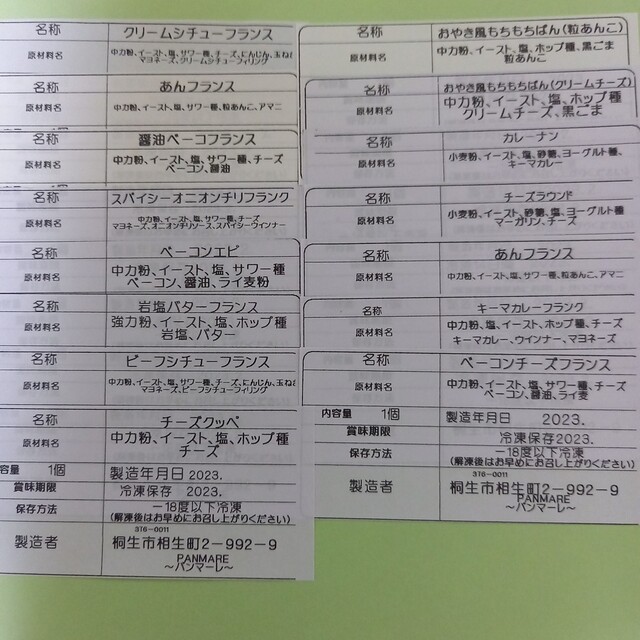 名称 クリームシチューフランス
原材料名 中力粉、イースト、塩、サワー種、チーズ、にんじん、玉ねぎ
マヨネーズ、クリームシチューフィリング
名称 あんフランス
原材料名 中力粉、イースト、塩、サワー種、粒あんこ、アマニ
名称 醤油ベーコフランス
原材料名 中力粉、イースト、塩、サワー種、チーズ
ベーコン、醤油
名称 スパイシーオニオンチリフランク
原材料名 中力粉、イースト、塩、サワー種、チーズ
マヨネーズ、オニオンチリソース、スパイシーウインナー
名称 ベーコンエピ
原材料名 中力粉、イースト、塩、サワー種
ベーコン、醤油、ライ麦粉
名称 岩塩バターフランス
原材料名 強力粉、イースト、塩、ホップ種
岩塩、バター
名称 ビーフシチューフランス
原材料名 中力粉、イースト、塩、サワー種、チーズ、にんじん、玉ねぎ
マヨネーズ、ビーフシチューフィリング
名称 チーズクッペ
原材料名 中力粉、イースト、塩、ホップ種
チーズ
容量 1個 製造年月日 2023.
賞味期限 冷凍保存 2023.
保存方法 −18度以下冷凍
(解凍後はお早めにお召し上がりください)
3T6-0011
製造者 桐生市相生町2−992−9
PANMARE
～パンマーレ～
名称 おやき風もちもちぱん(粒あんこ)
原材料名 中力粉、イースト、塩、ホップ種、黒ごま
粒あんこ
名称 おやき風もちもちぱん(クリームチーズ)
原材料名 中力粉、イースト、塩、ホップ種
クリームチーズ、黒ごま
名称 カレーナン
原材料名 小麦粉、イースト、塩、砂糖、ヨーグルト種、
キーマカレー
名称 チーズラウンド
原材料名 小麦粉、イースト、砂糖、塩、ヨーグルト種
マーガリン、チーズ
名称 あんフランス
原材料名 中力粉、イースト、塩、サワー種、粒あんこ、アマニ
名称 キーマカレーフランク
原材料名 中力粉、塩、イースト、ホップ種、チーズ
キーマカレー、ウインナー、マヨネーズ
名称 ベーコンチーズフランス
原材料名 中力粉、イースト、塩、サワー種、チーズ
ベーコン、醤油、ライ麦
内容量 1個 製造年月日 2023.
賞味期限 冷凍保存2023.
保存方法 −18度以下冷凍
(解凍後はお早めにお召し上がりください)
3T6-0011
製造者 桐生市相生町2−992−9
PANMARE
～パンマーレ～